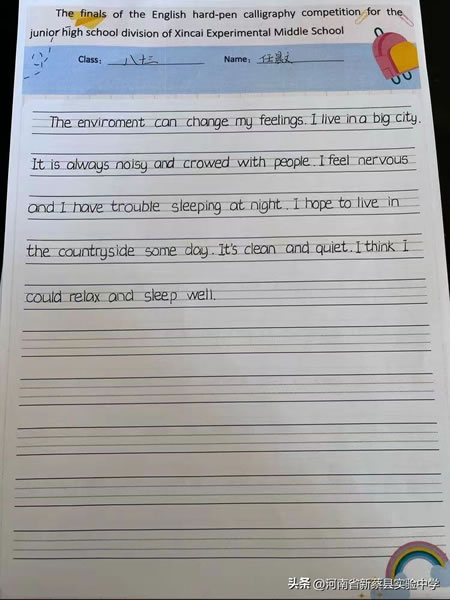 The finals of the English hard-pen calligraphy competition for the
junior high school division of Xincai Experimental Middle School
Class: 八十三 Name: 任
The enviroment can change my feelings. I live in a big city.
It is always noisy and crowed with people. I feel nervous
and I have trouble sleeping at night. I hope to live in
the countryside some day. It's clean and quiet. I think I
could relax and sleep well.
头条 @河南省新蔡县实验中学